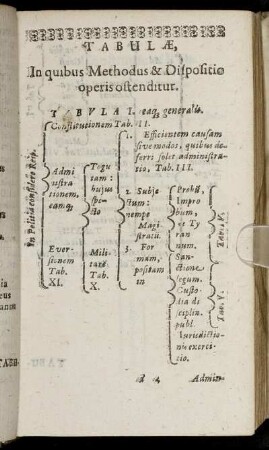 TABULÆ,
In quibus Methodus & Dispositio
operis ostenditur.
TABULA I. eaq; generalis.
Constitutionem Tab. II.
In Politia considero Rēp.
Admi
nistra
tionem.
eamq;
Ever-
sionem
Tab.
XI.
Togu
tam:
hujus
spe-
cto
Mili-
tarē
Tab.
X.
1. Efficientem causam
sive modos, quibus de
ferri solet administra-
tio, Tab. III.
2. Subje
ctum:
nempe
Magi
stratū.
3. For
mam,
positam
in
Probū,
Impro
bum,
Ty
ran
num.
San-
ctione
legum.
Custo
dia di
sciplin.
publ.
Iurisdictio-
nis exerci-
tio.
Admin-